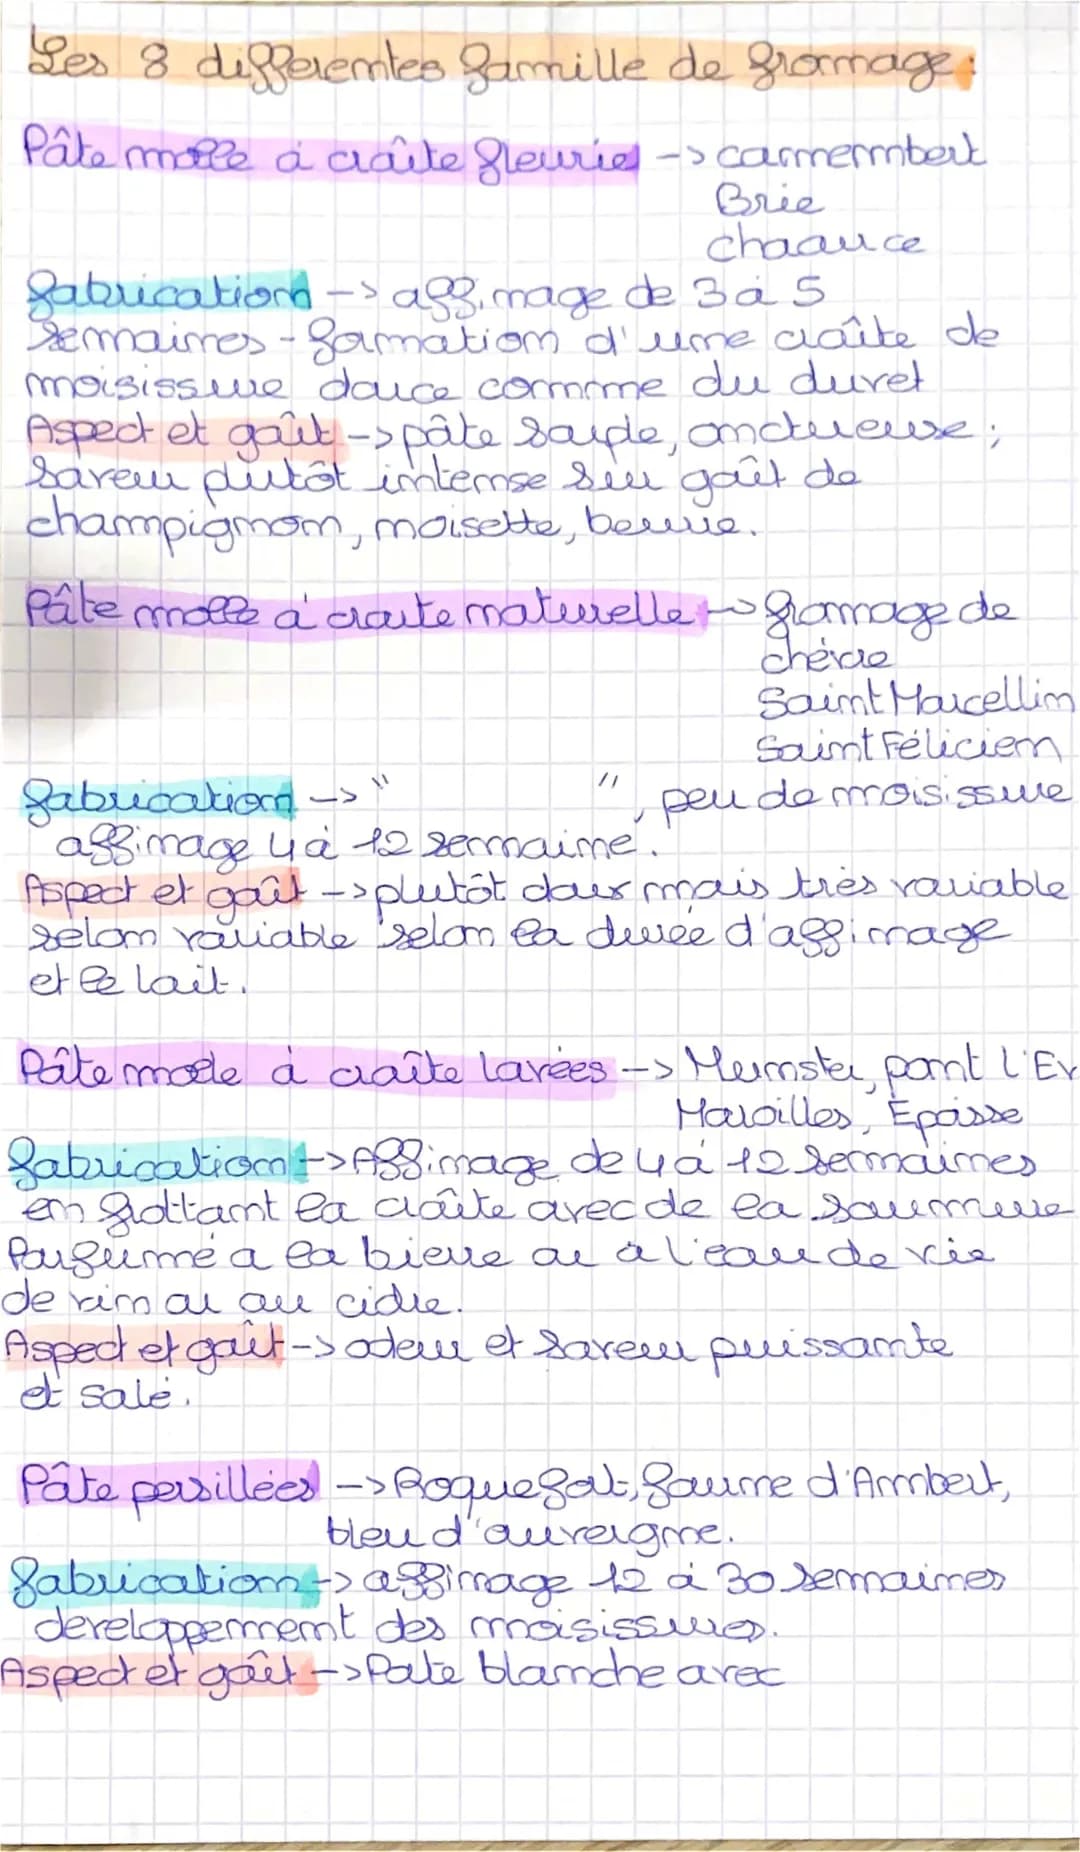 Les 8 differentes famille de fromage :
Pâte molle à croûte fleurie -> camembert
Brie
chaource
fabrication -> affinage de 3 à 5
semaines - formation d'une croûte de
moisissure douce comme du duvet
Aspect et goût -> pâte souple, onctueuse ;
saveur plutôt intense sur goût de
champignon, noisette, beurre.
Pâte molle à croute naturelle -> fromage de
chévre
Saint Marcellin
Saint Féliciem
fabrication -> " ", peu de moisissure
affinage 4 à 12 semaine.
Aspect et goût -> plutôt doux mais très variable
selon variable selon la durée d'affinage
et le lait.
Pâte molle à croûte lavées -> Munster, pont l'Ev
Maroilles, Époisse
fabrication -> Affinage de 4 à 12 semaines
en frottant la croûte avec de la saumure
Parfumé a la bierre ou à l'eau de vie
de vin ou au cidre.
Aspect et goût -> odeur et saveur puissante
et salé.
Pâte persillées -> Roquefort, fourme d'Ambert,
bleu d'auvergne.
fabrication -> affinage 12 à 30 semaines
developpement des moisissures.
Aspect et goût -> Pate blanche avec